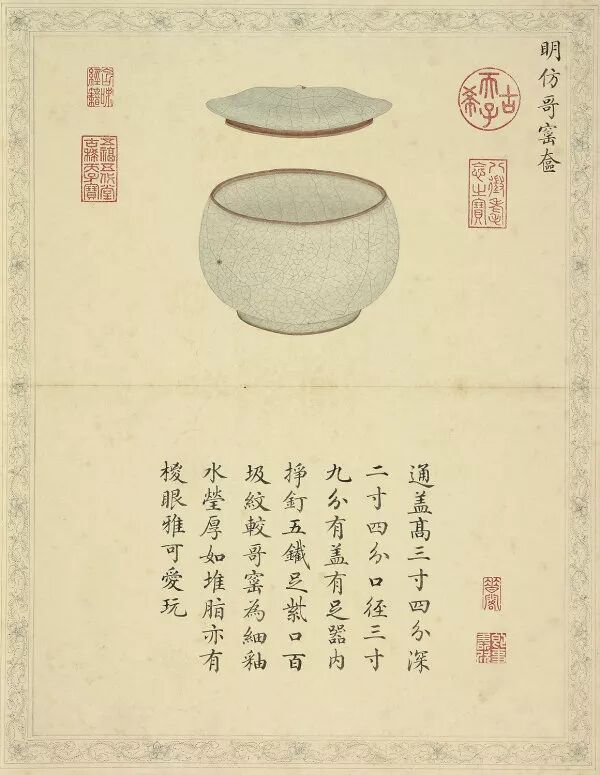 明仿哥窰
古希天子
八徵耄念之寶
五福五代堂古稀天子寶
通盖髙三寸四分深
二寸四分口徑三寸
九分有盖有足器内
掙釘五鐵足紫口百
圾紋較哥窰為細釉
水瑩厚如堆脂亦有
椶眼雅可愛玩